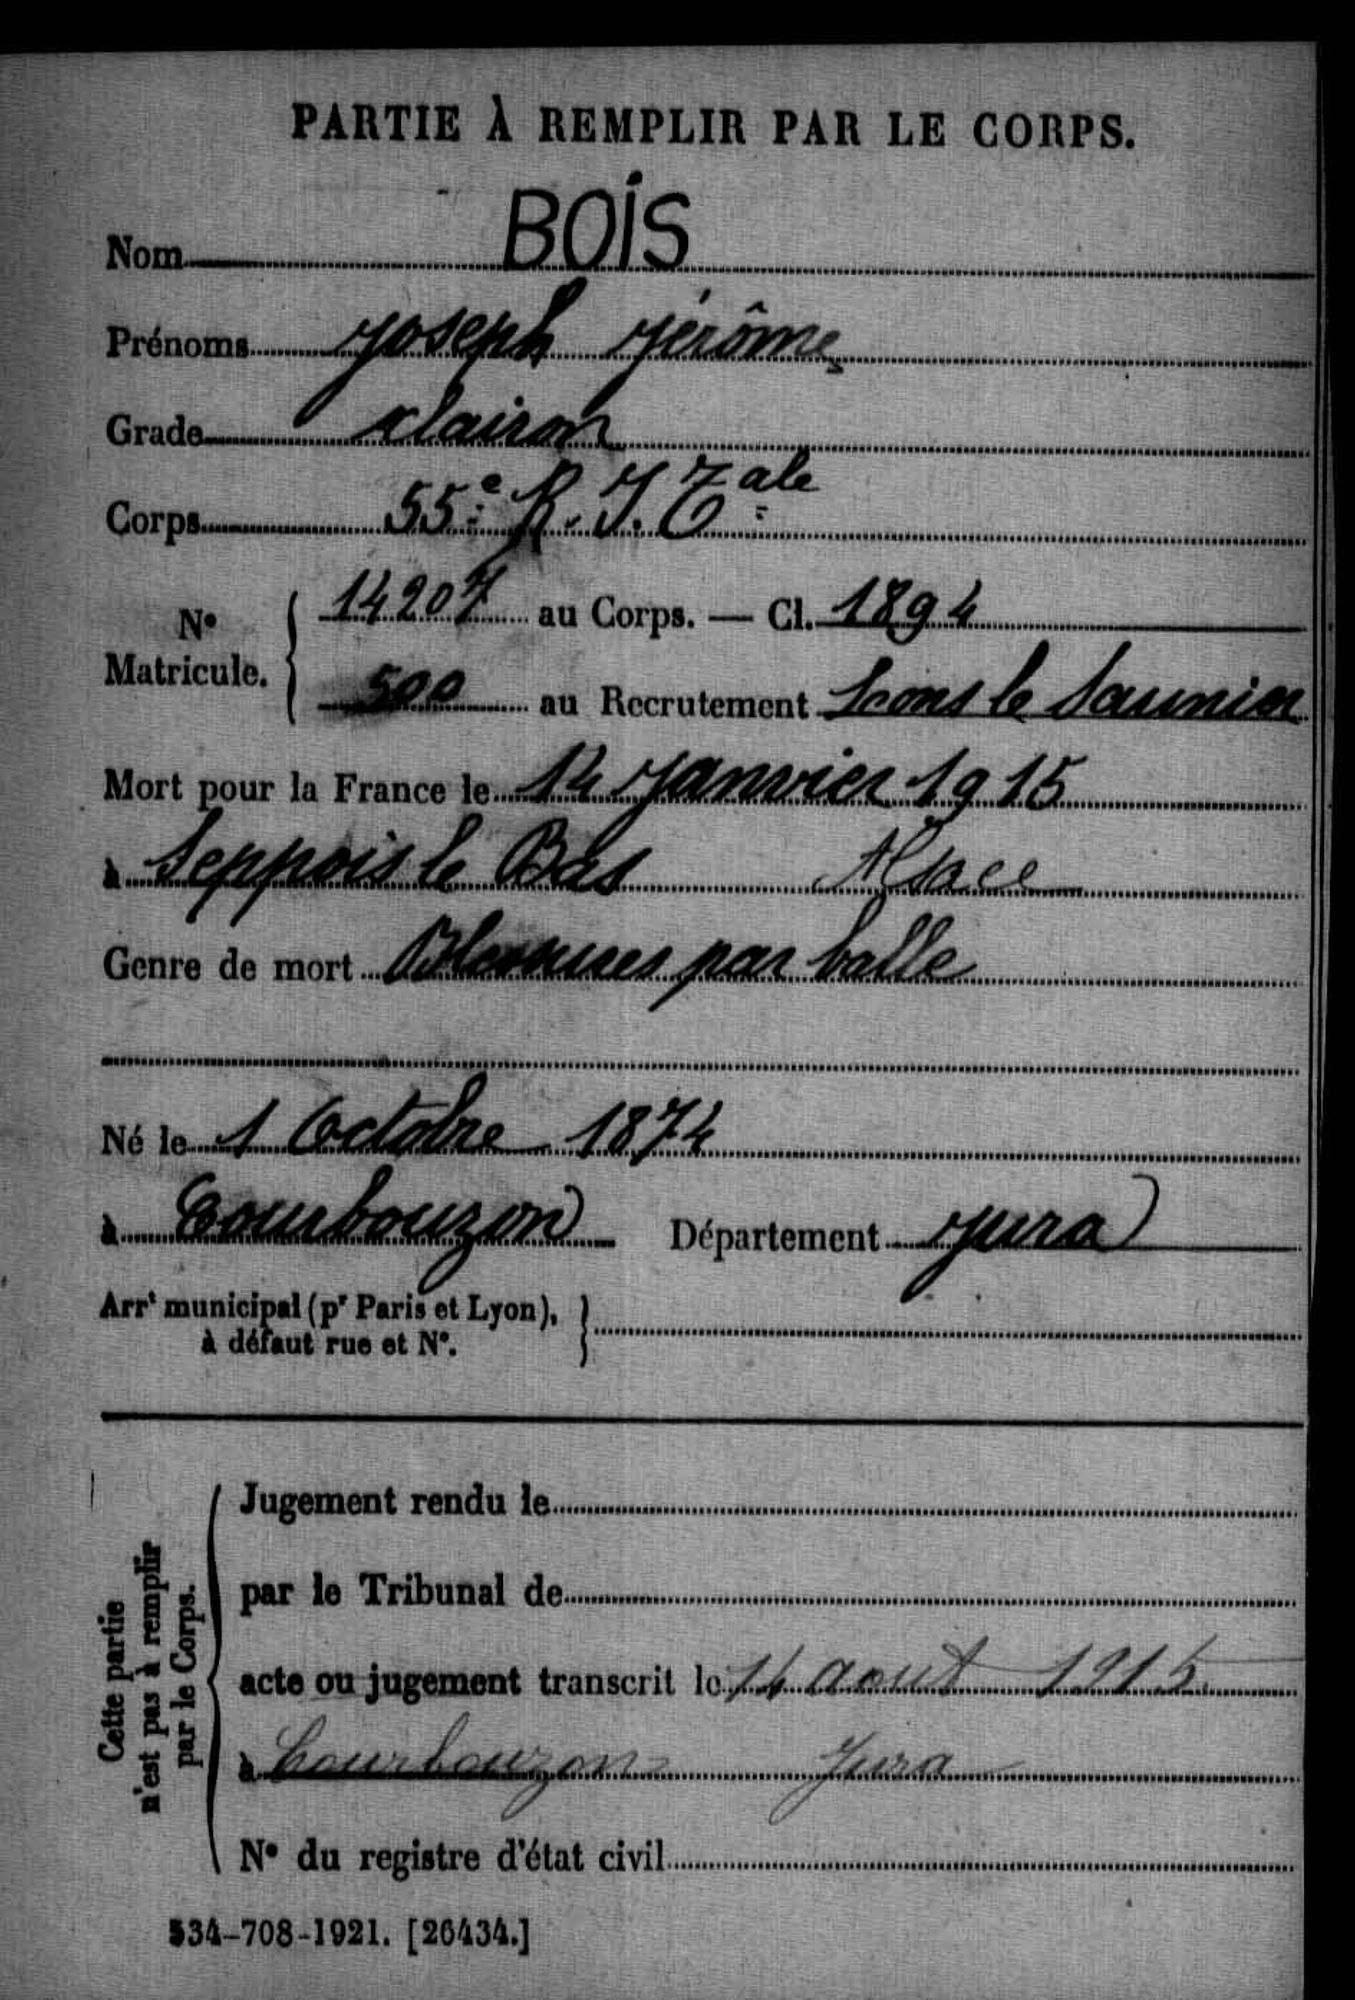 PARTIE À REMPLIR PAR LE CORPS.
Nom BOIS
Prénoms Joseph Jérôme
Grade clairon
Corps 55e R. I. Tale
No Matricule. { 14207 au Corps. — Cl. 1894
500 au Recrutement Lons le Saunier
Mort pour la France le 14 Janvier 1915
à Seppois le Bas Alsace
Genre de mort Blessures par balle
Né le 1 Octobre 1874
à Courbouzon Département Jura
Arrt municipal (pr Paris et Lyon), }
à défaut rue et No.
Cette partie
n'est pas à remplir
par le Corps.
Jugement rendu le
par le Tribunal de
acte ou jugement transcrit le 14 aout 1915
à Courbouzon Jura
No du registre d'état civil
534-708-1921. [26434.]